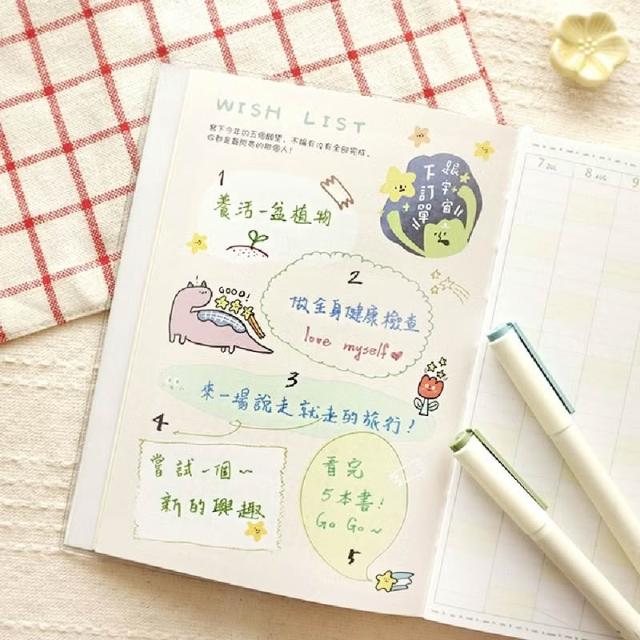 WISH LIST
寫下今年的五個願望，不論有沒有全部完成，
你都是最閃亮的那個人！
跟宇宙
下訂單
1
養活一盆植物
GOOD!
2
做全身健康檢查
love myself
3
來一場說走就走的旅行!
4
嘗試一個~
新的興趣
看完
5本書!
Go Go~
5
7
8
9